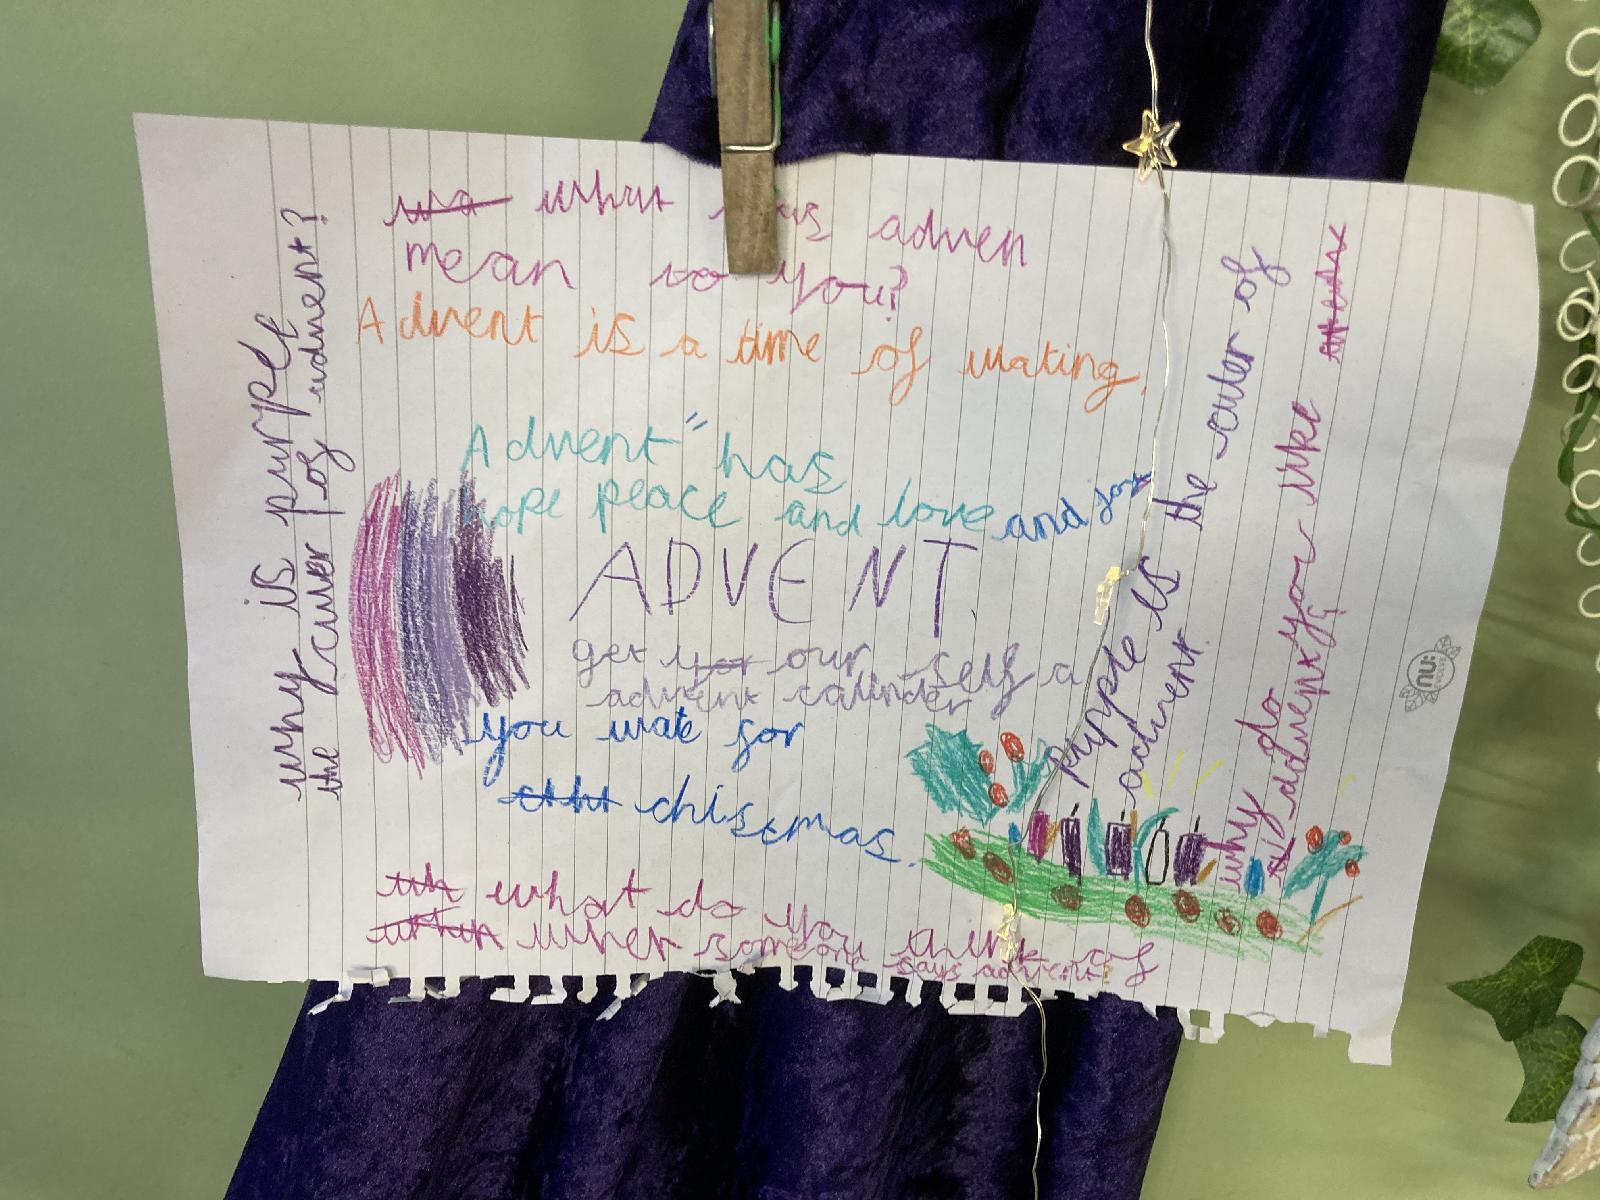 what adven
mean to you?
Advent is a time of wating.
Advent" has
hope peace and love and joy
ADVENT
get our self a
advent calinder
you wate for
chisemas.
what do you think of
when someone says advent?
why is purpel
the culuer of advent?
purple is the culer of
advent.
why do you like
advent?
nu: